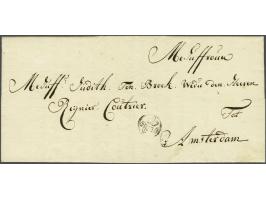 Meduffrouw
Meduff. Judith Ten Broek Wedu den Heeren
Regnier Coutrier
Tot
Amsterdam